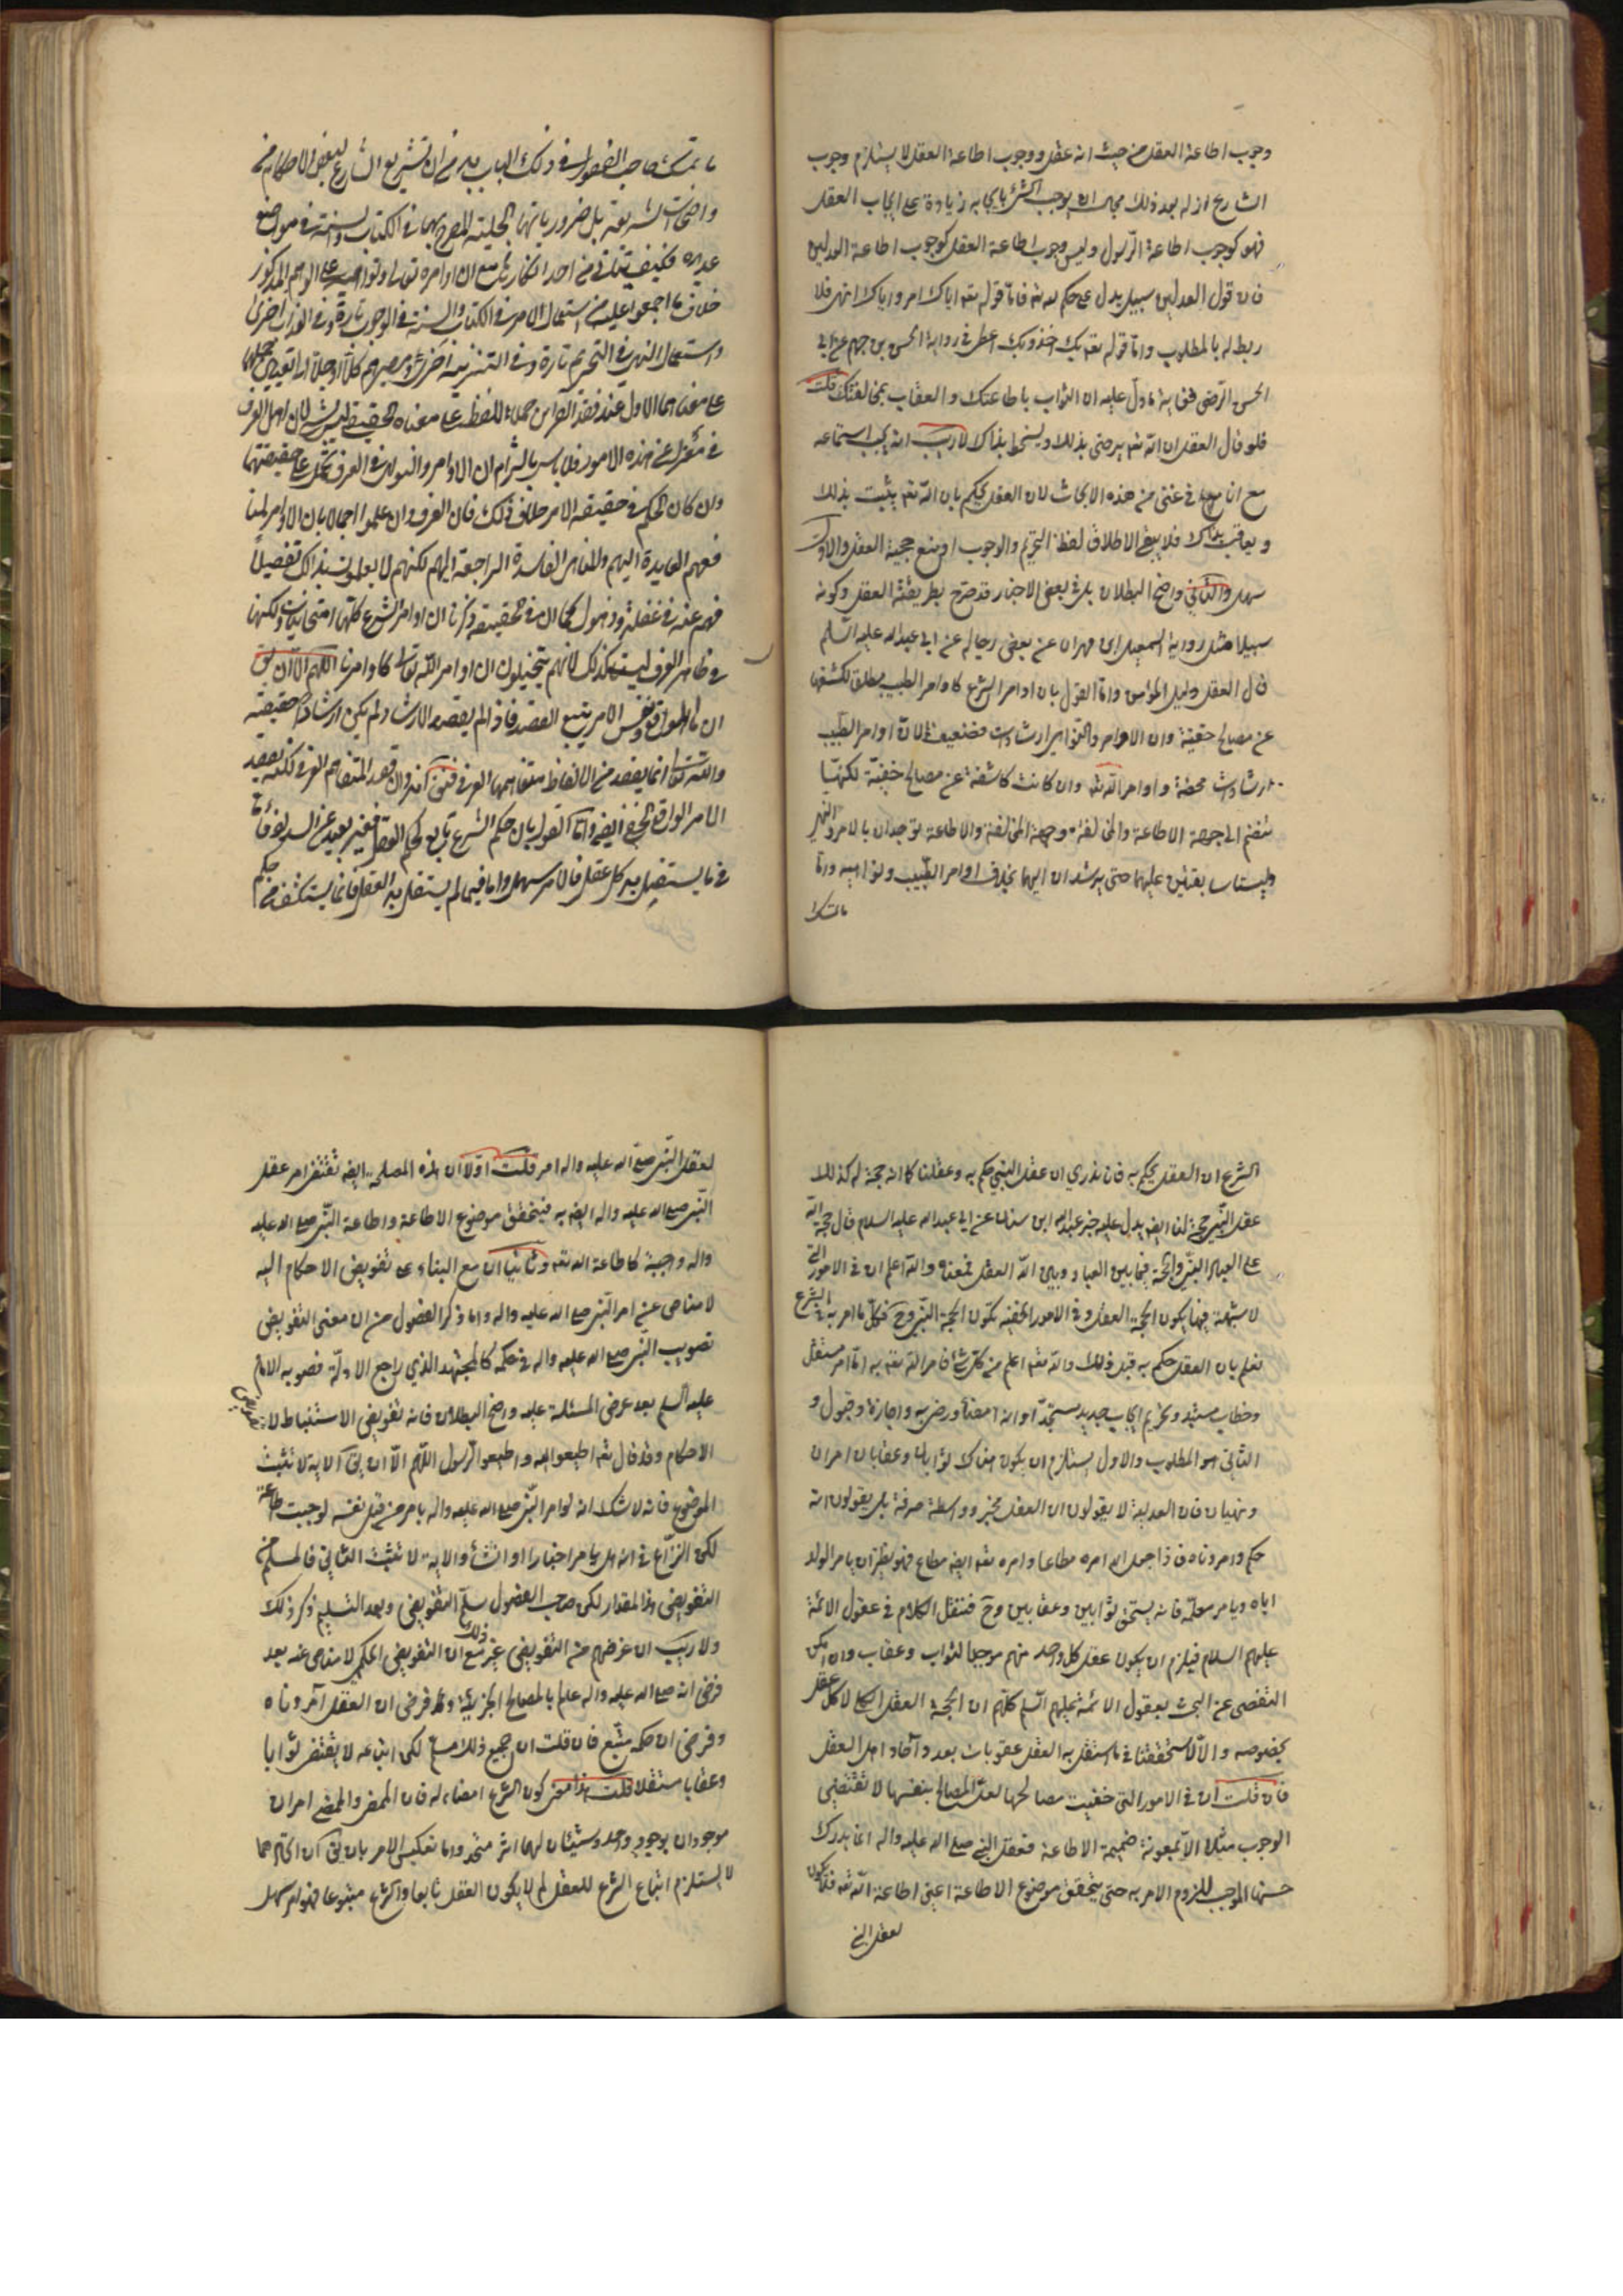 وجوب اطاعة العقل من حيث انه عقل ووجوب اطاعة العقل لا يستلزم وجوب
الشارع اذ له بعد ذلك مجال ان يوجب الشئ بايجابه زيادة على ايجاب العقل
فهو كوجوب اطاعة الرسول وليس وجوب اطاعة العقل كوجوب اطاعة العدلين
فان قول العدلين سبيل يدل على حكم الله تع فامّا قوله تع اياك امر واياك انهى فلا
ربط له بالمطلوب وامّا قوله تع بك اخذ وبك اعطى في رواية الحسن بن جهم عن ابي
الحسن الرّضى فغاية ما دلّ عليه ان الثواب باطاعتك والعقاب بمخالفتك قلت
فلو قال العقل ان الله تع يرضى بذلك ويسخط بذاك لا ريب انه يجب استماعه
مع انا في غنى من هذه الابحاث لان العقل يحكم بان الله تع يثيب بذلك
ويعاقب بذاك فلا يبقى الا اطلاق لفظ التحريم والوجوب او منع حجية العقل والاوّل
سهل والثاني واضح البطلان بل في بعض الاخبار قد صرّح بطريقيّة العقل وكونه
سبيلا مثل رواية اسمعيل ابن مهران عن بعض رجاله عن ابي عبد الله عليه السّلم
قال العقل دليل المؤمن وامّا القول بان اوامر الشرع كاوامر الطبيب مطلق لكشفها
عن مصالح خفيّة وان الاوامر والنواهي ارشادات فضعيف لانّ اوامر الطّبيب
ارشادات محضة واوامر الله تع وان كانت كاشفة عن مصالح خفيّة لكنّها
تنضم الى جهة الاطاعة والمخالفة وجهة المخالفة والاطاعة توجدان بالامر والنهي
وليستا سابقتين عليهما حتى يرشد ان اليهما بخلاف اوامر الطّبيب ونواهيه وامّا
ما تمسّك
ما تمسّك صاحب الفصول في ذلك الباب به من ان تشريع الشارع لبعض الاحكام من
واضحات الشريعة بل ضرورياتها الجلية المصرح بها في الكتاب والسنة في مواضع
عديدة فكيف يتأتى من احد انكاره مع ان اوامره تعالى ونواهيه على الوهم المذكور
خلاف ما اجمعوا عليه من استعمال الامر في الكتاب والسنة في الوجوب تارة وفي الندب اخرى
واستعمال النهي في التحريم تارة وفي التنزيه اخرى ومصيرهم كلّا او جلّا الى التعبد بحملهما
على معناهما الاول عند فقد القرائن حملا للفظ على معناه الحقيقي فليس بشئ لان اهل العرف
في معزل عن هذه الامور فلا باس بالتزام ان الاوامر والنواهي في العرف تحمل على حقيقتهما
وان كان الحكم في حقيقة الامر خلاف ذلك فان العرف وان علموا اجمالا بان الاوامر لمنا
فعهم العايدة اليهم والمفاسد الراجعة اليهم لكنهم لا يعلمون بذاك تفصيلاً
فهم عنه في غفلة وذهول كما ان في الحقيقة ذكرنا ان اوامر الشرع كلها امتحانيات ولكنها
في ظاهر العرف ليست كذلك لانهم يتخيلون ان اوامر الله تعالى كاوامرنا اللهم الا ان يق
ان الواقع ونفس الامر يتبع القصد فاذا لم يقصد الارشاد لم يكن ارشادا حقيقة
والله تعالى انما يقصد من الالفاظ متفاهمها العرفي
الامر الواقعي الخفي ايضا وامّا القول بان حكم الشرع تابع لحكم العقل فغير بعيد عن السداد
في ما يستقل به كل عقل فالامر سهل واما فيما لم يستقل به العقل فانما يستكشف من حكم
الشرع ان العقل يحكم به فان ندري ان عقل النبي حكم به وعقلنا كما انه حجة له كذلك
عقل النّبي حجة لنا ايضا يدل عليه خبر عبد الله ابن سنان عن ابي عبد الله عليه السلام قال حجة الله
على العباد النبيّ والحجة فيما بين العباد وبين الله العقل فمعناه والله اعلم ان في الامور التي
لا شبهة فيها يكون الحجة العقل وفي الامور الخفية يكون الحجة النّبي وح فكلّ ما امر به الشرع
نعلم بان العقل حكم به قبل ذلك والله تع اعلم من كل شئ فامر الله تع به امّا امر مستقل
وخطاب مستبد وتحريم ايجاب جديد مستجدّ او انه امضاء ورضى به واجازة وقبول و
الثاني هو المطلوب والاول يستلزم ان يكون هناك ثوابان وعقابان امران
ونهيان فان العدلية لا يقولون ان العقل مخبر وواسطة صرفة بل يقولون انه
حكم وامر وناه فاذا جعل الله امره مطاعا وامره تع ايضا مطاع فهو نظير ان يامر الولد
اباه ويامر معلمه فانه يستحق ثوابين وعقابين وح فننقل الكلام في عقول الائمة
عليهم السلام فيلزم ان يكون عقل كل واحد منهم موجبا لثواب وعقاب وان امكن
التفصى عن البحث بعقول الائمة عليهم السّلم كلّهم ان الحجة العقل الكلي لا كل عقل
بخصوصه والّا لاستحققنا في ما استقل به العقل عقوبات بعدد آحاد اهل العقل
فان قلت ان في الامور التي خفيت مصالحها لعلّ المصالح بنفسها لا تقتضي
الوجوب مثلا الا بمعونة ضميمة الاطاعة فعقل النبي صلى الله عليه واله انما يدرك
حسنها الموجب للزوم الامر به حتى يتحقق موضوع الاطاعة اعني اطاعة الله تع فلا يكون
لعقل النبي
لعقل النّبي صلى الله عليه واله امر قلت اوّلا ان هذه المصلحة ايضا تقتضى امر عقل
النّبي صلى الله عليه واله ايضا به فيتحقق موضوع الاطاعة واطاعة النّبي صلى الله عليه
واله واجبة كاطاعة الله تع وثانيا ان مع البناء على تفويض الاحكام اليه
لا مناص عن امر النّبي صلى الله عليه واله واما ذكر الفصول من ان معنى التفويض
تصويب النّبي صلى الله عليه واله في حكمه كالمجتهد الذي راجع الادلّة فصوبه الامام
عليه السلم بعد عرض المسئلة عليه واضح البطلان فانه تفويض الاستنباط لا تفويض
الاحكام وقد قال تع اطيعوا الله واطيعوا الرّسول اللّهم الّا ان يق الاية لا تثبت
الموضوع فانه لا شك انه لو امر النّبي صلى الله عليه واله بامر من قبل نفسه لوجبت طاعته
لكن النزاع في انه هل يامر اخبارا او انشاء والاية لا تثبت الثاني فالمسلم من
التفويض هذا المقدار لكن صاحب الفصول سلّم التفويض وبعد التسليم ذكر ذلك
ولا ريب ان غرضهم من التفويض غير ذلك مع ان التفويض الحكمي لا مناص عنه بعد
فرض انه صلى الله عليه واله عالم بالمصالح الجزئية وقد فرض ان العقل آمر وناه
وفرض ان حكمه متّبع فان قلت ان جميع ذلك مسلم لكن اتباعه لا يقتضى ثوابا
وعقابا مستقلا قلت هذا معنى كون الشرع امضاء له فان الممضى والممضي امران
موجودان بوجود واحد وشيئان لهما اثر متحد واما تعكيس الامر بان يق ان اتحادهما
لا يستلزم اتباع الشرع للعقل لم لا يكون العقل تابعا والشرع متبوعا فهو امر سهل